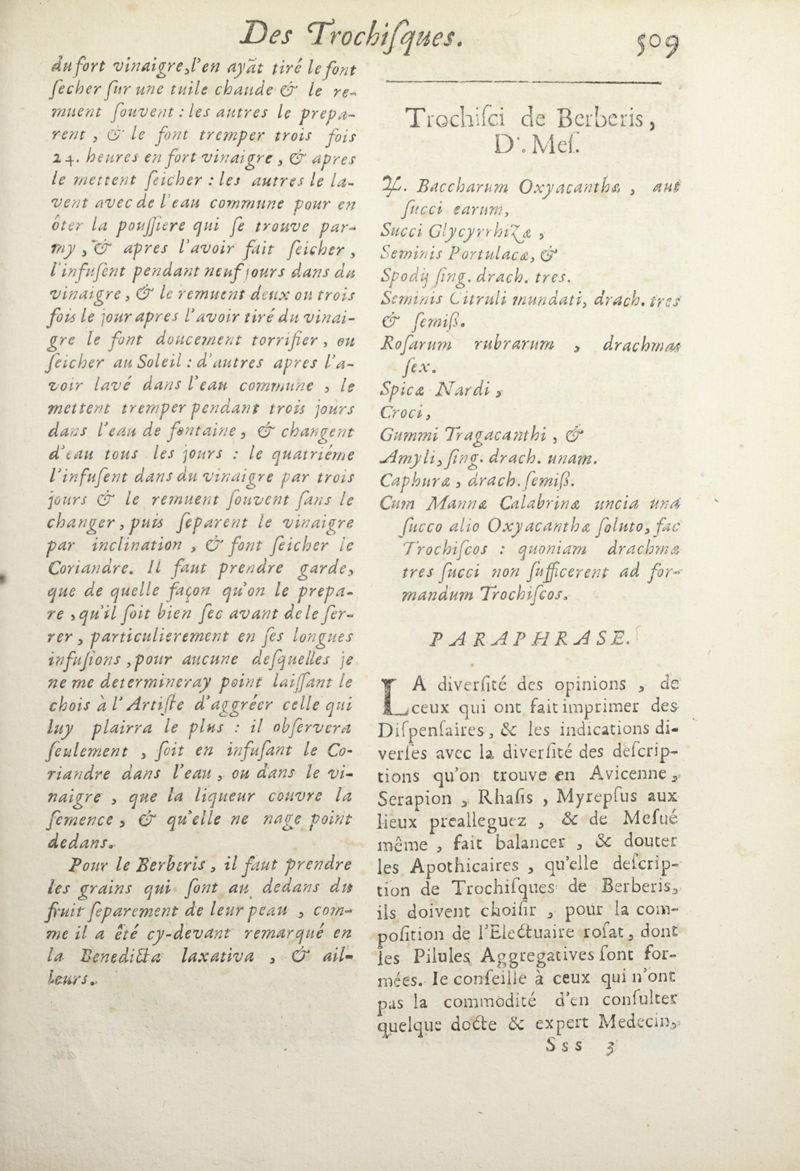 Des Trochiſques. 509
du fort vinaigre, l'en ayāt tiré le font
ſecher ſur une tuile chaude & le re-
muent ſouvent : les autres le prepa-
rent , & le font tremper trois fois
24. heures en fort vinaigre , & apres
le mettent ſeicher : les autres le la-
vent avec de l'eau commune pour en
ôter la pouſſiere qui ſe trouve par-
my , & apres l'avoir fait ſeicher ,
l'infuſent pendant neuf jours dans du
vinaigre , & le remuent deux ou trois
fois le jour apres l'avoir tiré du vinai-
gre le font doucement torrifier , ou
ſeicher au Soleil : d'autres apres l'a-
voir lavé dans l'eau commune , le
mettent tremper pendant trois jours
dans l'eau de fontaine , & changent
d'eau tous les jours : le quatriéme
l'infuſent dans du vinaigre par trois
jours & le remuent ſouvent ſans le
changer , puis ſeparent le vinaigre
par inclination , & font ſeicher le
Coriandre. Il faut prendre garde,
que de quelle façon qu'on le prepa-
re , qu'il ſoit bien ſec avant de le ſer-
rer , particulierement en ſes longues
infuſions , pour aucune deſquelles je
ne me determineray point laiſſant le
chois à l'Artiſte d'aggréer celle qui
luy plairra le plus : il obſervera
ſeulement , ſoit en infuſant le Co-
riandre dans l'eau , ou dans le vi-
naigre , que la liqueur couvre la
ſemence , & qu'elle ne nage point
dedans.
Pour le Berberis , il faut prendre
les grains qui ſont au dedans du
fruit ſeparement de leur peau , com-
me il a êté cy-devant remarqué en
la Benedicta laxativa , & ail-
leurs.
Trochiſci de Berberis,
D'. Meſ.
℞. Baccharum Oxyacanthæ , aut
ſucci earum,
Succi Glycyrrhizæ ,
Seminis Portulacæ, &
Spodij ſing. drach. tres.
Seminis Citruli mundati, drach. tres
& ſemiß.
Roſarum rubrarum , drachmas
ſex.
Spicæ Nardi ,
Croci ,
Gummi Tragacanthi , &
Amyli, ſing. drach. unam.
Caphuræ , drach. ſemiß.
Cum Mannæ Calabrinæ uncia unà
ſucco alio Oxyacanthæ ſoluto, fac
Trochiſcos : quoniam drachmæ
tres ſucci non ſufficerent ad for-
mandum Trochiſcos.
PARAPHRASE.
LA diverſité des opinions , de
ceux qui ont fait imprimer des
Diſpenſaires , & les indications di-
verſes avec la diverſité des deſcrip-
tions qu'on trouve en Avicenne ,
Serapion , Rhaſis , Myrepſus aux
lieux prealleguez , & de Meſué
même , fait balancer , & douter
les Apothicaires , qu'elle deſcrip-
tion de Trochiſques de Berberis,
ils doivent choiſir , pour la com-
poſition de l'Electuaire roſat , dont
les Pilules Aggregatives ſont for-
mées. Ie conſeille à ceux qui n'ont
pas la commodité d'en conſulter
quelque docte & expert Medecin,
Sss 3